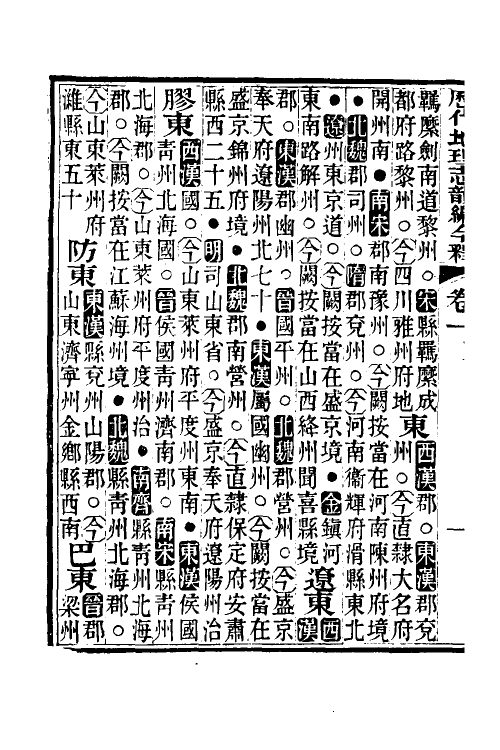 歷代地理志韻編今釋 卷一 一
羈縻劍南道黎州○宋縣羈縻成
都府路黎州○今四川雅州府地
東
西漢郡○東漢郡兗
州○今直隸大名府
開州南●南宋郡南豫州○今闕按當在河南陳州府境
●北魏郡司州○隋郡兗州○今河南衛輝府滑縣東北
●遼州東京道○今闕按當在盛京境●金鎮河
東南路解州○今闕按當在山西絳州聞喜縣境
遼東
西
漢
郡○東漢郡幽州○晉國平州○北魏郡營州○今盛京
奉天府遼陽州北七十●東漢屬國幽州○今闕按當在
盛京錦州府境●北魏郡南營州○今直隸保定府安肅
縣西二十五●明司山東省○今盛京奉天府遼陽州治
膠東
西漢國○今山東萊州府平度州東南●東漢侯國
青州北海國○晉侯國青州濟南郡○南宋縣青州
北海郡○今山東萊州府平度州治●南齊縣青州北海
郡○今闕按當在江蘇海州境●北魏縣青州北海郡○
今山東萊州府
濰縣東五十
防東
東漢縣兗州山陽郡○今
山東濟寧州金鄉縣西南
巴東
晉郡
梁州